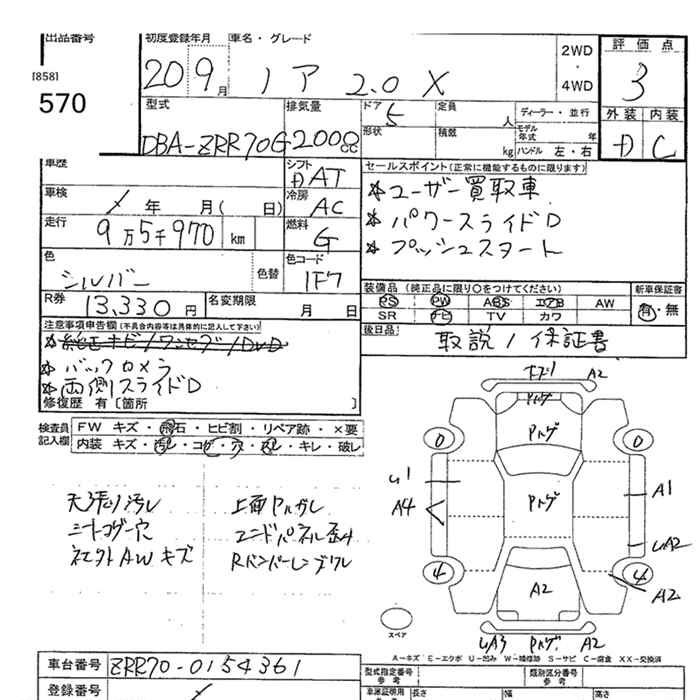 出品番号
初度登録年月 車名・グレード
[858]
570
20 9月 ノア 2.0 X
2WD
・
4WD
評価点
3
外装 内装
D C
型式 排気量 ドア 定員 ディーラー・並行
DBA-ZRR70G 2000cc 5 人
形状 積載 kg モデル年式 年
ハンドル 左・右
車歴 シフト
DAT
車検 年 月( 日) 冷房
AC
走行 9万5千970 km 燃料
G
色 シルバー 色替 色コード
1F7
R券 13,330円 名変期限 月 日
セールスポイント(正常に機能するものに限ります)
*ユーザー買取車
*パワースライドD
*プッシュスタート
装備品(純正品に限り○をつけてください) 新車保証書
PS PW ABS エアB AW
SR ナビ TV カワ 有・無
後日品: 取説/保証書
注意事項申告欄(不具合内容等は具体的に記入して下さい)
*純正ナビ/ワンセグ/DVD
*バックカメラ
*両側スライドD
修復歴 有〔箇所 〕
検査員記入欄
FW キズ・飛石・ヒビ割・リペア跡・×要
内装 キズ・汚レ・コゲ・穴・スレ・キレ・破レ
天張り汚レ
シートコゲ穴
ネエクトAWキズ
上面Pハガレ
エンドパネル歪み
Rバンパーレンズワレ
A2
Pハゲ
Pハゲ
0 0
U1
A4
Pハゲ
A1
UA2
4 4
A2
A2
スペア
UA3 Pハゲ A2
A=キズ E=エクボ U=凹み W=補修跡 S=サビ C=腐食 XX=交換済
車台番号 ZRR70-0154361
登録番号
型式指定番号 参考 類別区分番号 参考
車庫証明用 長さ 幅 高さ